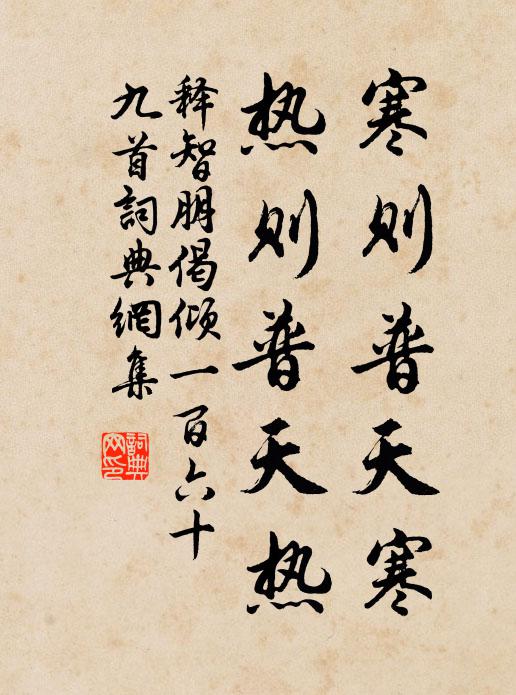 寒则普天寒
热则普天热
释智朋偈倾一百六十
九首詞典網集
詞典网印